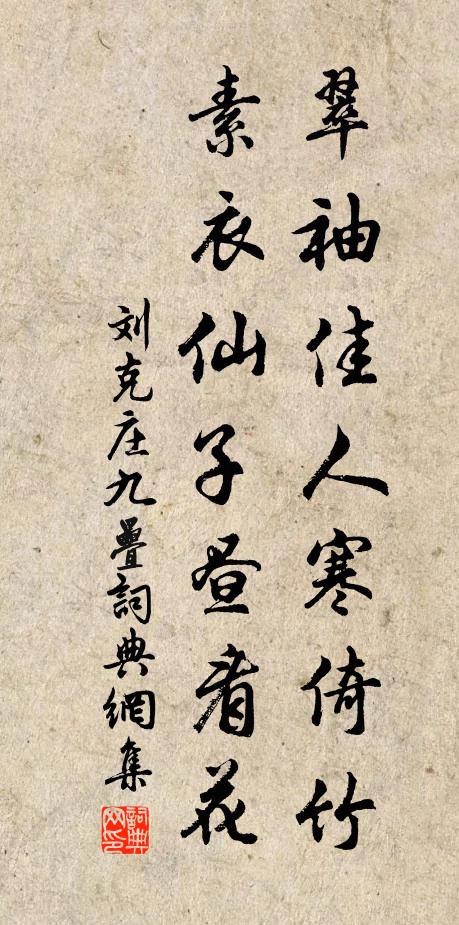 翠袖佳人寒倚竹
素衣仙子昼看花
刘克庄九疊詞典網集
詞典网印